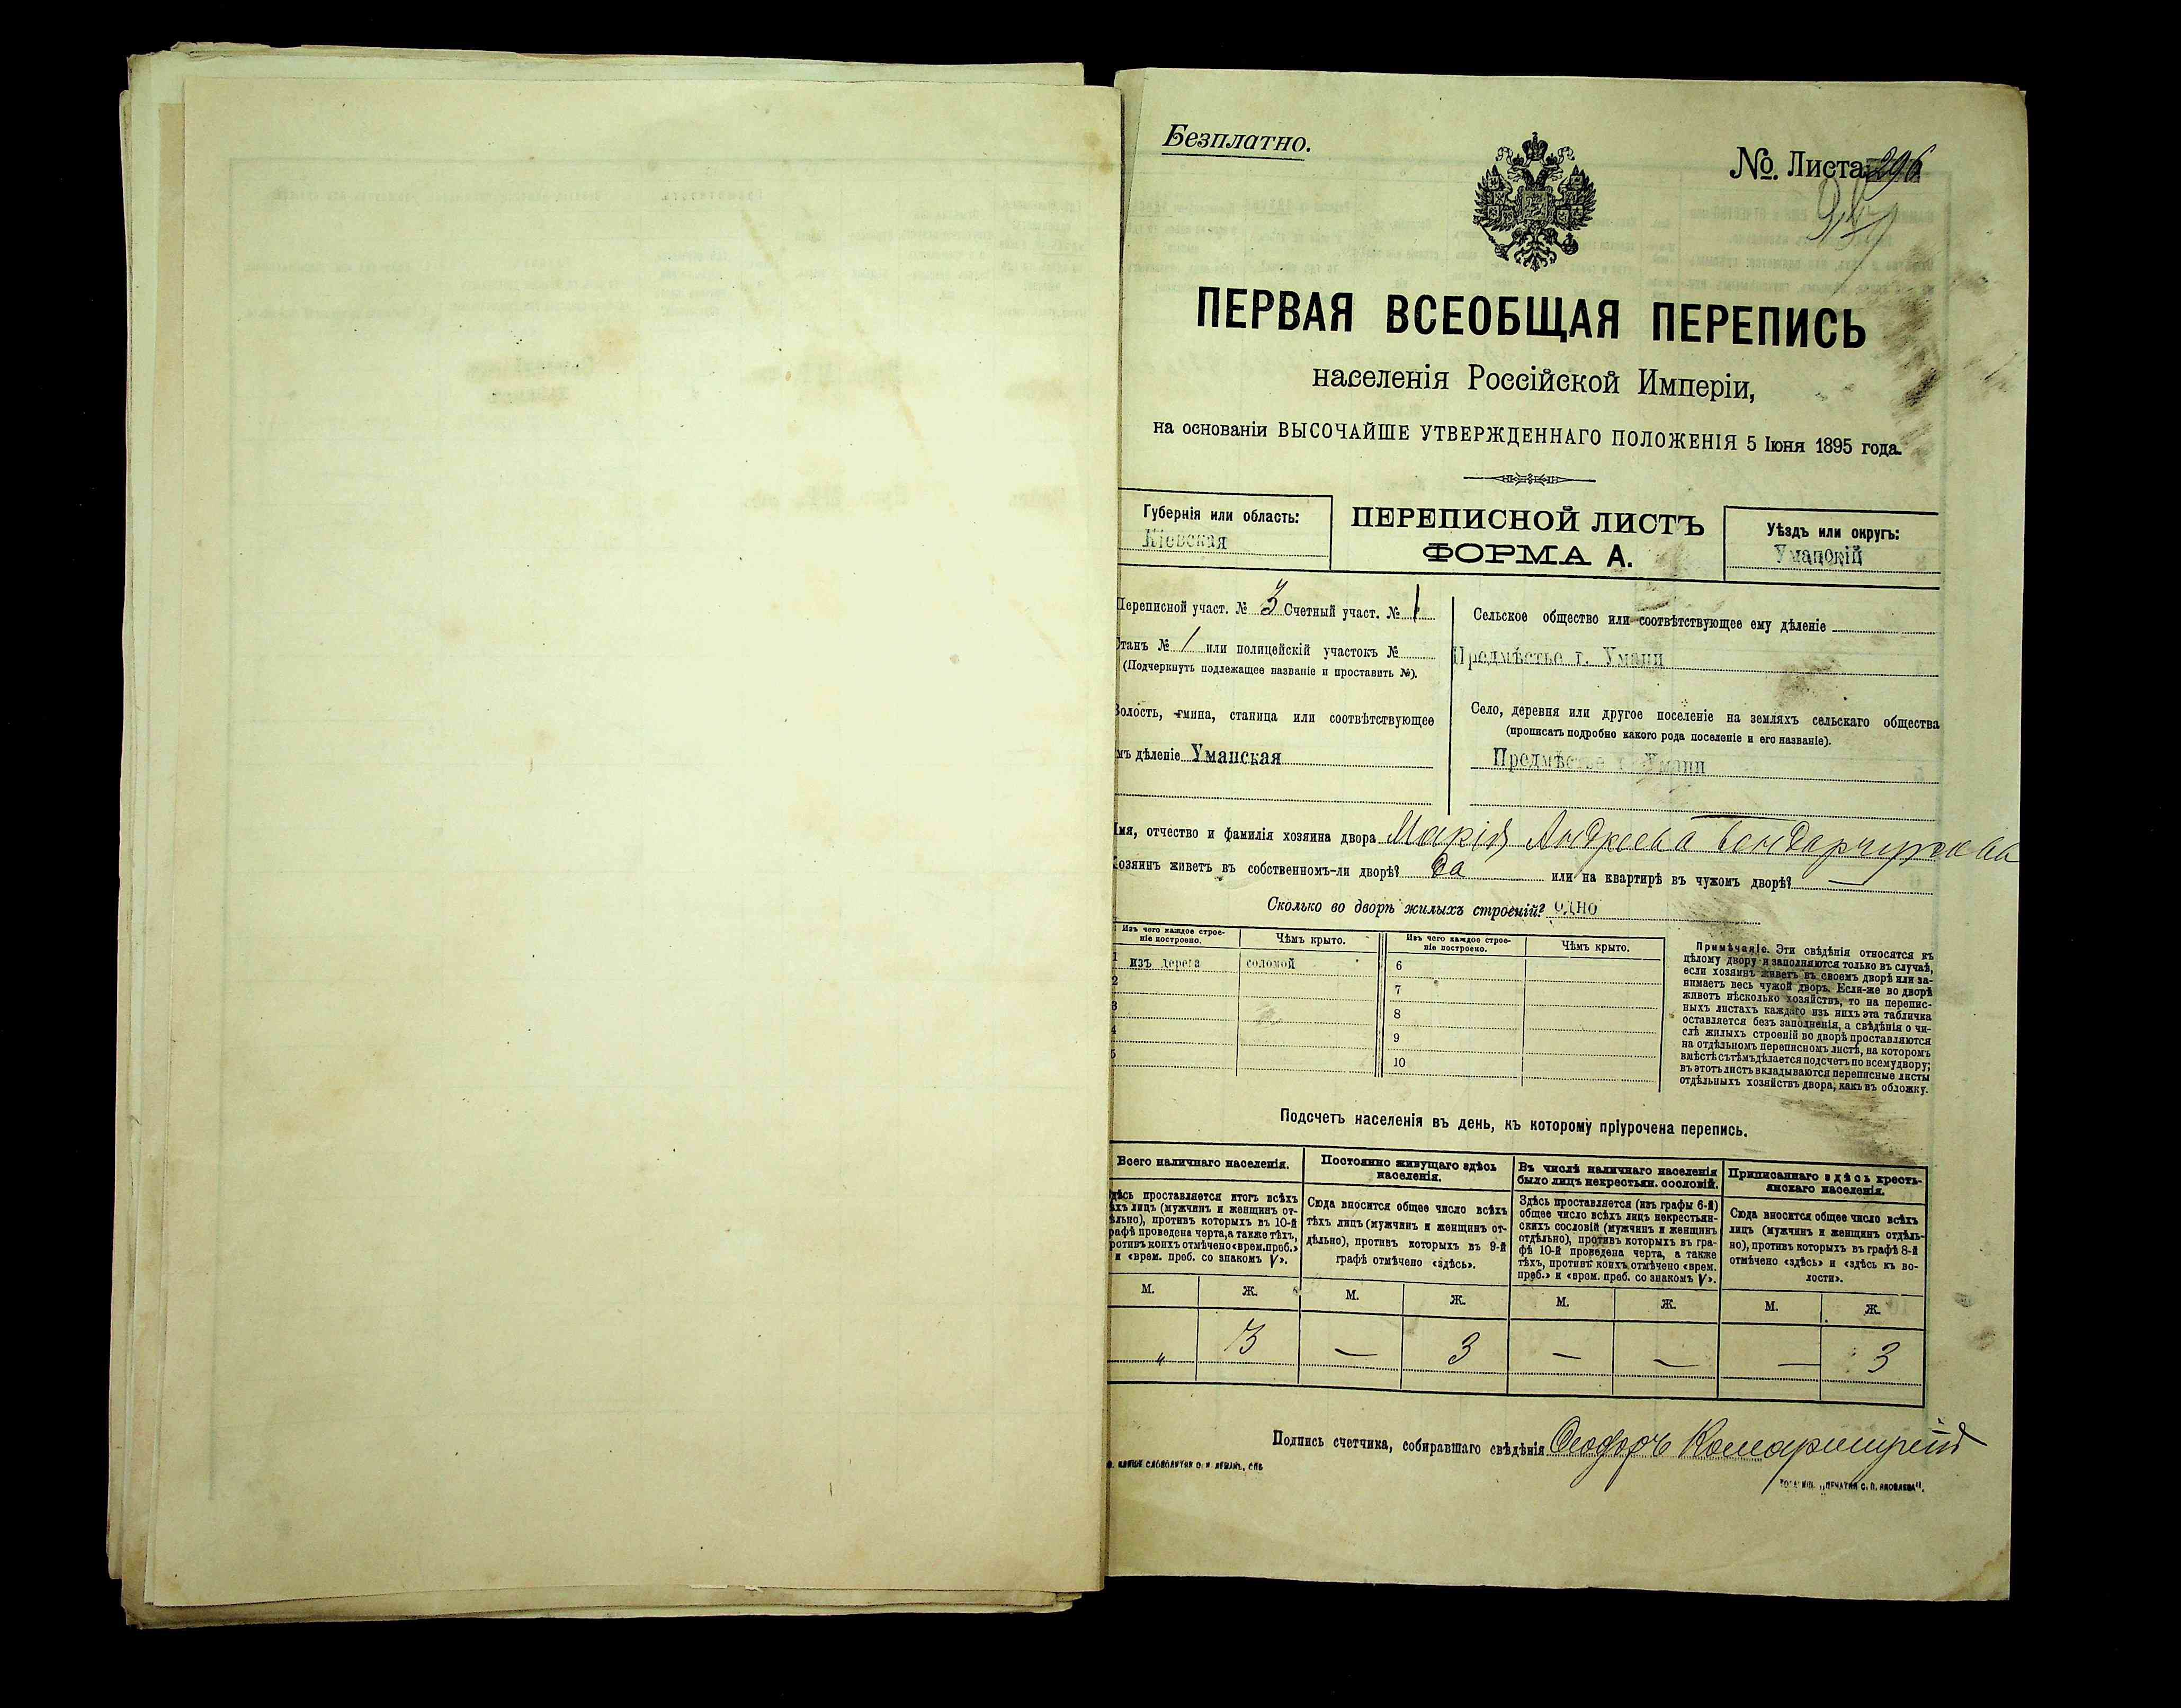 Безплатно.
№. Листа 296
ПЕРВАЯ ВСЕОБЩАЯ ПЕРЕПИСЬ
населенія Россійской Имперіи,
на основаніи ВЫСОЧАЙШЕ УТВЕРЖДЕННАГО ПОЛОЖЕНІЯ 5 Іюня 1895 года.
Губернія или область:
Кіевская
ПЕРЕПИСНОЙ ЛИСТЪ
ФОРМА А.
Уѣздъ или округъ:
Уманскій
Переписной участ. № 3 Счетный участ. № 1
Станъ № 1 или полицейскій участокъ №
(Подчеркнуть подлежащее названіе и проставить №).
Волость, гмина, станица или соотвѣтствующее
имъ дѣленіе Уманская
Сельское общество или соотвѣтствующее ему дѣленіе
Предмѣстье г. Умани
Село, деревня или другое поселеніе на земляхъ сельскаго общества
(прописать подробно какого рода поселеніе и его названіе).
Предмѣстье г. Умани
Имя, отчество и фамилія хозяина двора Марія Андреева Бондарчукова
Хозяинъ живетъ въ собственномъ-ли дворѣ? Да или на квартирѣ въ чужомъ дворѣ? —
Сколько во дворѣ жилыхъ строеній? одно
Изъ чего каждое строе-
ніе построено.
Чѣмъ крыто.
Изъ чего каждое строе-
ніе построено.
Чѣмъ крыто.
1 изъ дерева соломой 6
2 7
3 8
4 9
5 10
Примѣчаніе. Эти свѣдѣнія относятся къ
цѣлому двору и заполняются только въ случаѣ,
если хозяинъ живетъ въ своемъ дворѣ или за-
нимаетъ весь чужой дворъ. Если-же во дворѣ
живетъ нѣсколько хозяйствъ, то на перепис-
ныхъ листахъ каждаго изъ нихъ эта табличка
оставляется безъ заполненія, а свѣдѣнія о чи-
слѣ жилыхъ строеній во дворѣ проставляются
на отдѣльномъ переписномъ листѣ, на которомъ
вмѣстѣ съ тѣмъ дѣлается подсчетъ по всему двору;
въ этотъ листъ вкладываются переписные листы
отдѣльныхъ хозяйствъ двора, какъ въ обложку.
Подсчетъ населенія въ день, къ которому пріурочена перепись.
Всего наличнаго населенія.
Здѣсь проставляется итогъ всѣхъ
тѣхъ лицъ (мужчинъ и женщинъ от-
дѣльно), противъ которыхъ въ 10-й
графѣ проведена черта, а также тѣхъ,
противъ коихъ отмѣчено «врем. преб.»
и «врем. преб. со знакомъ V».
Постоянно живущаго здѣсь
населенія.
Сюда вносится общее число всѣхъ
тѣхъ лицъ (мужчинъ и женщинъ от-
дѣльно), противъ которыхъ въ 9-й
графѣ отмѣчено «здѣсь».
Въ числѣ наличнаго населенія
было лицъ некрестьян. сословій.
Здѣсь проставляется (изъ графы 6-й)
общее число всѣхъ лицъ некрестьян-
скихъ сословій (мужчинъ и женщинъ
отдѣльно), противъ которыхъ въ гра-
фѣ 10-й проведена черта, а также
тѣхъ, противъ коихъ отмѣчено «врем.
преб.» и «врем. преб. со знакомъ V».
Приписаннаго здѣсь кресть-
янскаго населенія.
Сюда вносится общее число всѣхъ
лицъ (мужчинъ и женщинъ отдѣль-
но), противъ которыхъ въ графѣ 8-й
отмѣчено «здѣсь» и «здѣсь къ во-
лости».
М. Ж. М. Ж. М. Ж. М. Ж.
„ 3 — 3 — — — 3
Подпись счетчика, собиравшаго свѣдѣнія Ѳеодоръ